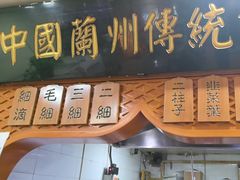 中國蘭州傳統
細滴
毛細
三細
二細
二柱子
韭菜葉